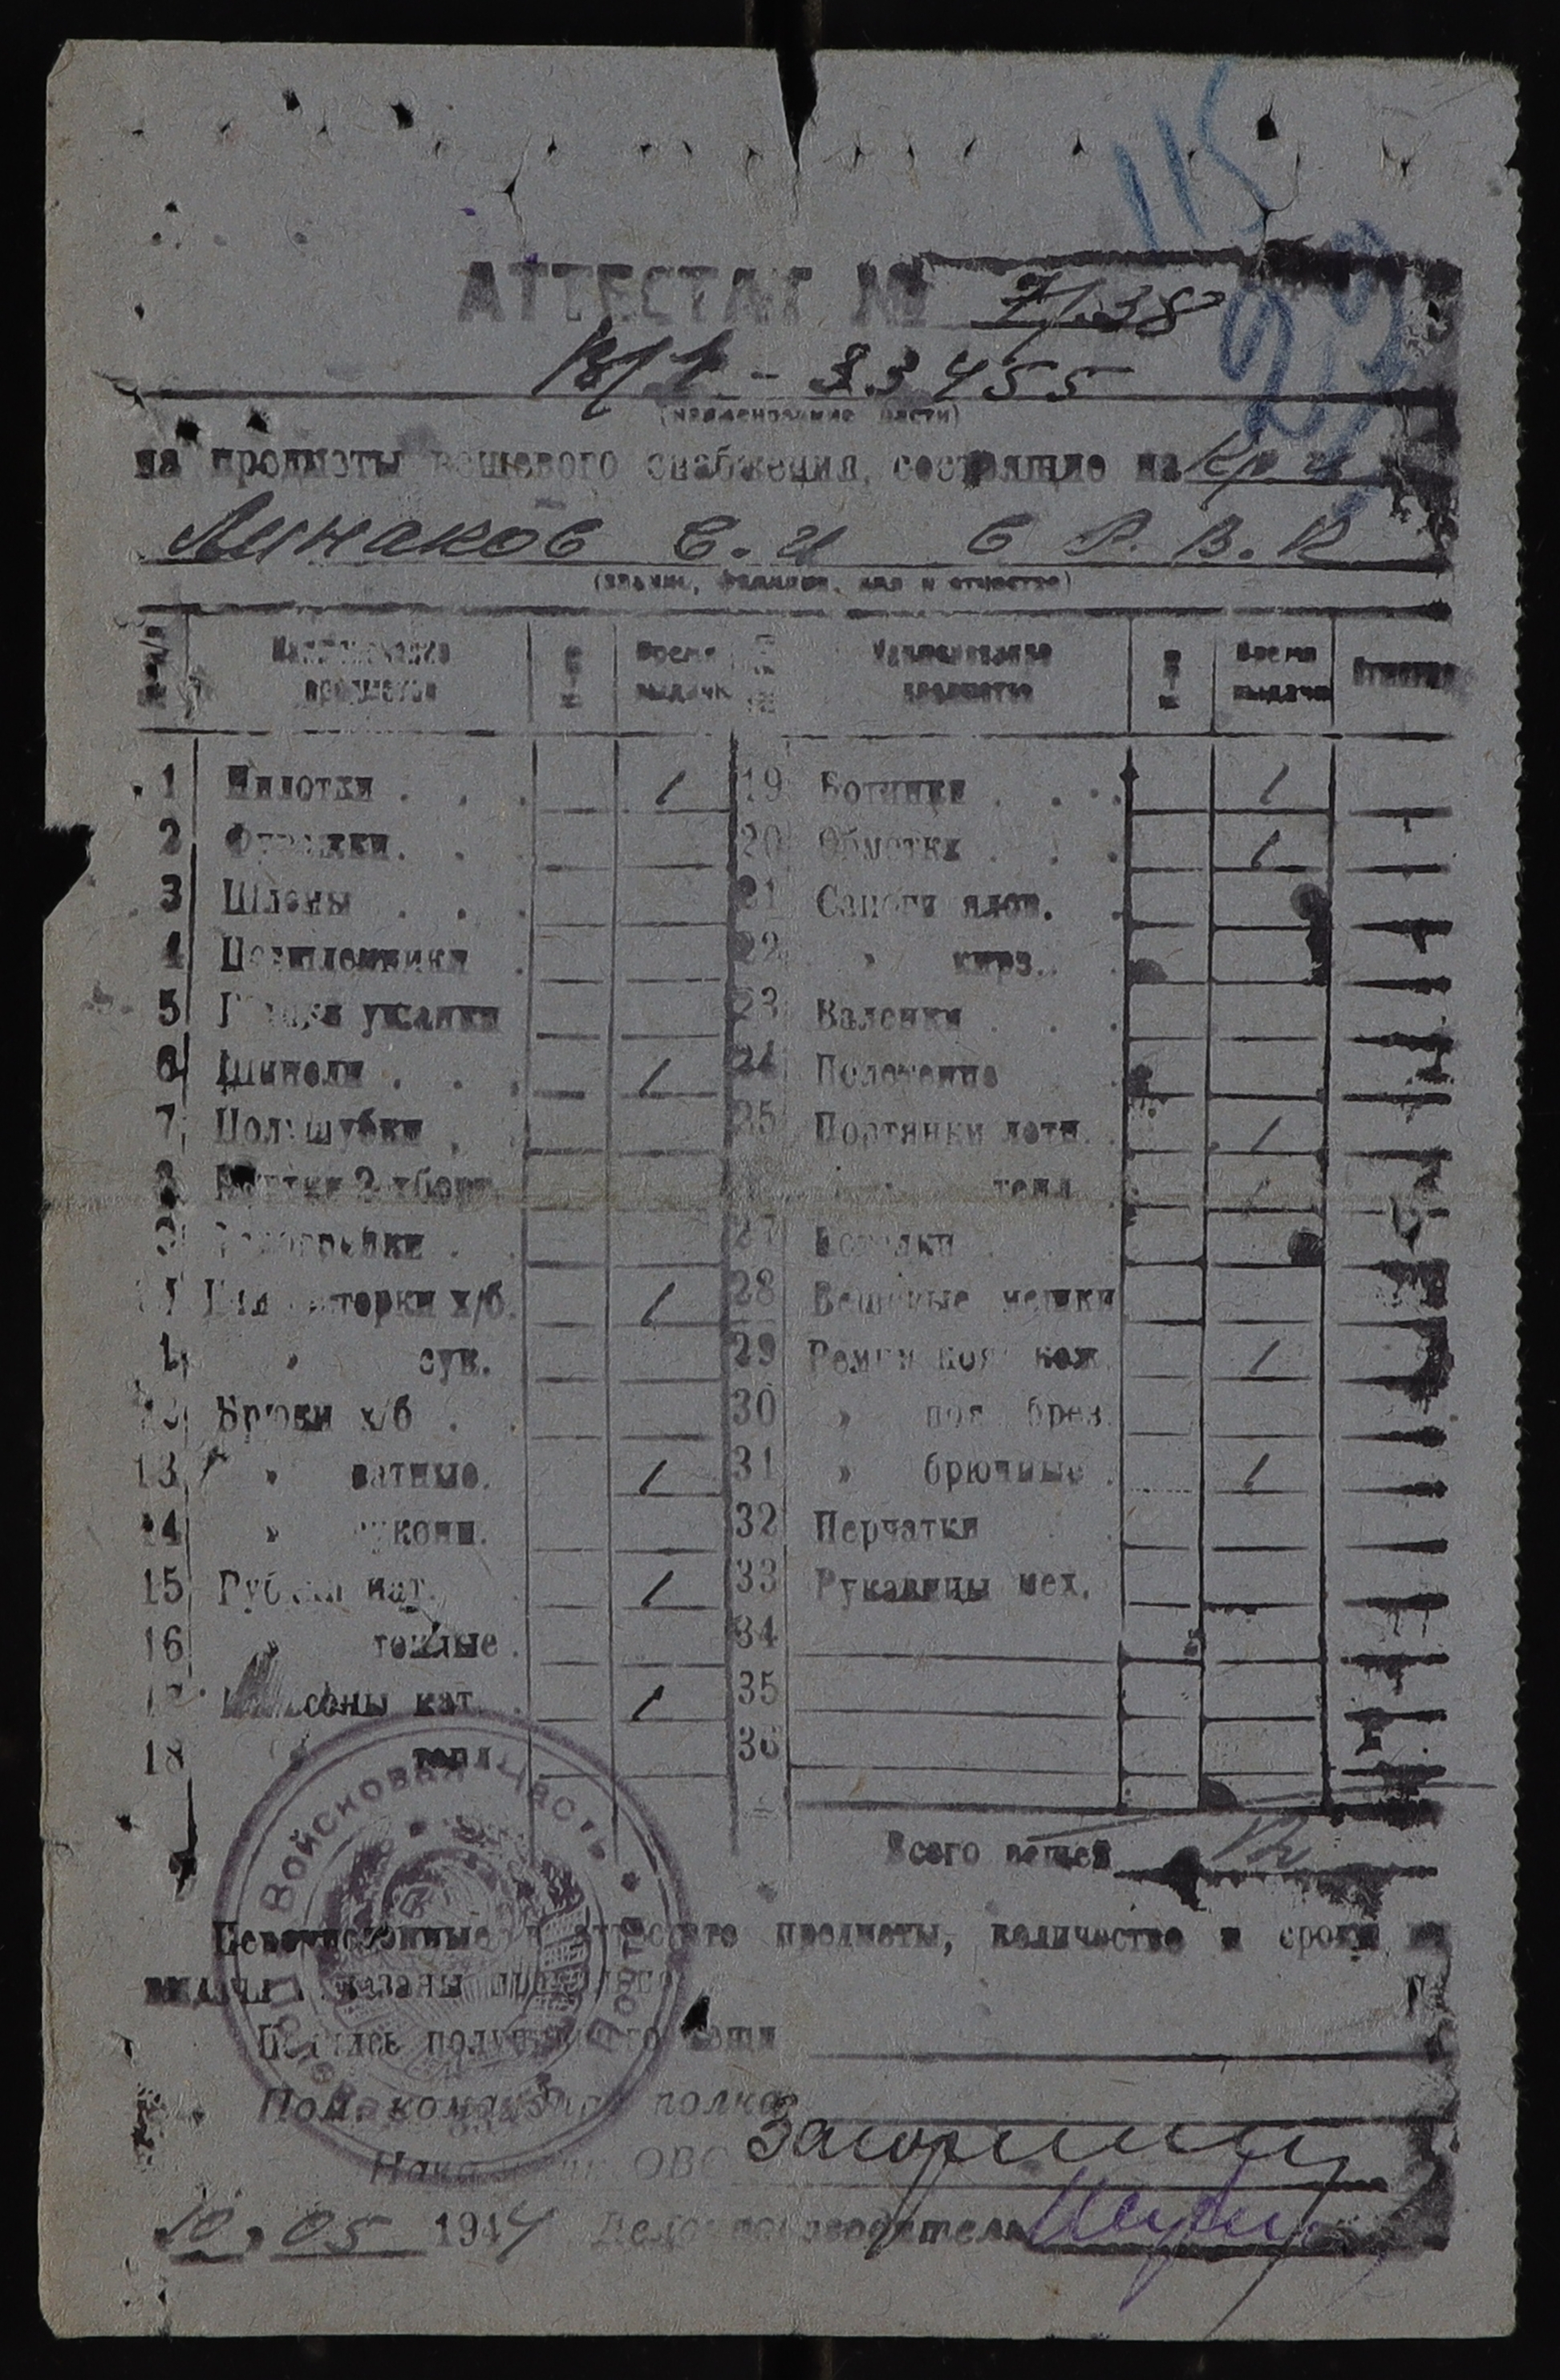 115
АТТЕСТАТ № 7/38
В/Ч - 33455
(наименование части)
на предметы вещевого снабжения, состоящие на Кр-ц
Линаков С. И С Р. В. К
(звание, фамилия, имя и отчество)
Наименование предметов Время выдачи Наименование предметов Время выдачи
1 Пилотки . . . 1 19 Ботинки . . . 1
2 Фуражки. . 20 Обмотки . . . 1
3 Шлемы . . . 21 Сапоги ялов. .
4 Подшлемники . 22 » кирз. .
5 Шапки ушанки 23 Валенки . . .
6 Шинели . . . 1 24 Полотенце
7 Полушубки . . 25 Портянки летн. . 1
8 тепл. 1
9 Телогрейки . . 27 Котелки .
Гимнастерки х/б. 1 28 Вещевые мешки
» сук. 29 Ремни пояс кож. 1
Брюки х/б . . 30 » пояс брез.
13 » ватные. 1 31 » брючные . 1
14 » суконн. 32 Перчатки
15 Рубахи нат. 1 33 Рукавицы мех.
16 » теплые . 34
17 Кальсоны нат. . 1 35
18 тепл. 36
Всего вещей 12
Войсковая часть Полевая Почта
Перечисленные в аттестате предметы, количество и сроки их
выдачи указаны правильно
Подпись получившего вещи
Пом. командира полка
Начальник ОВС
10 . 05 1944 Делопроизводитель